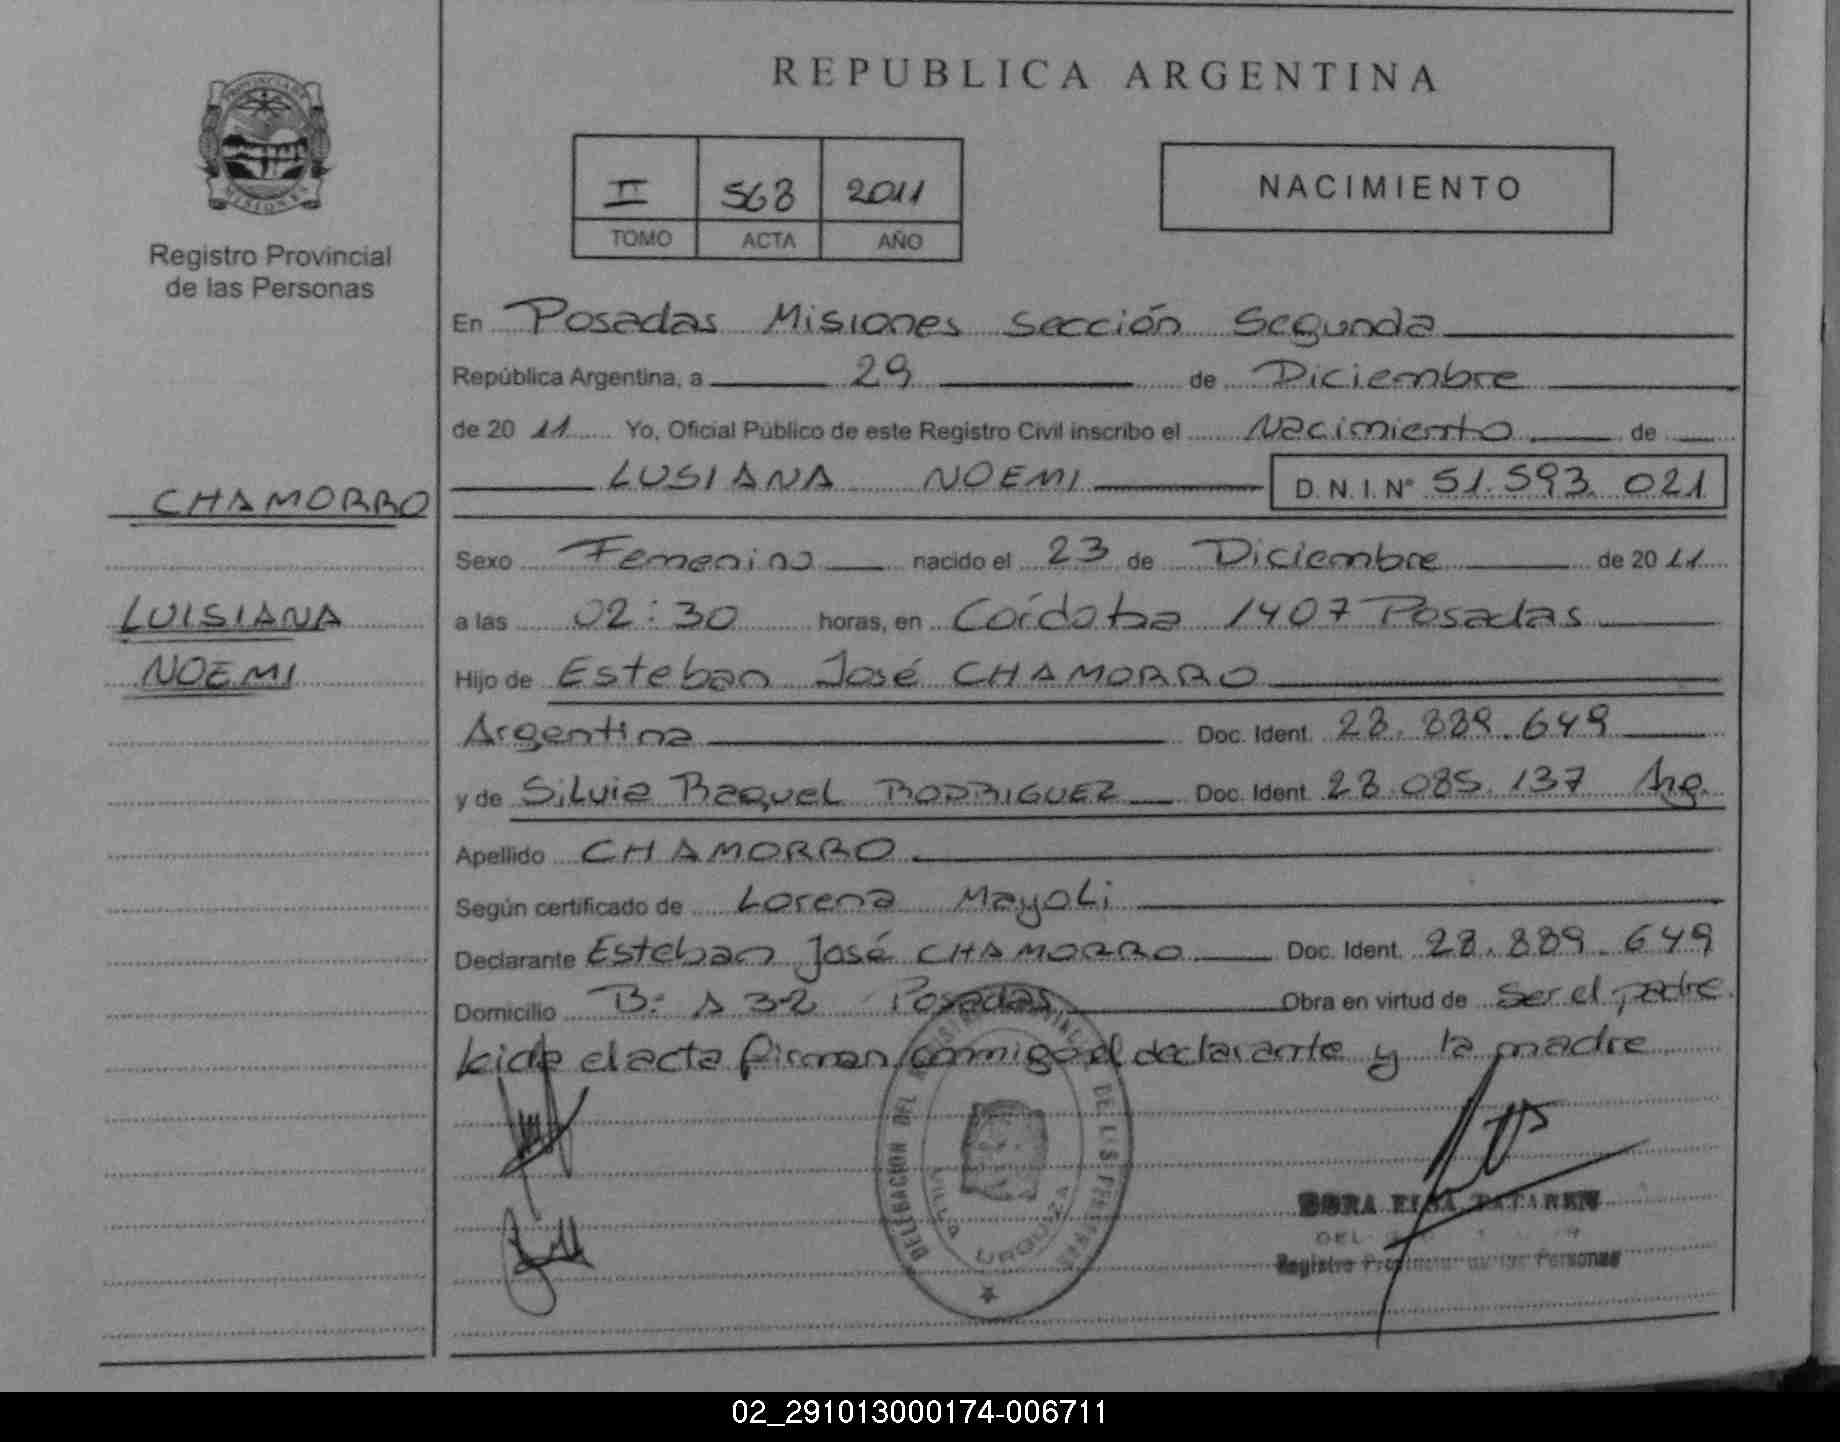 REPUBLICA ARGENTINA
PROVINCIA DE
MISIONES
Registro Provincial
de las Personas
II 568 2011
TOMO ACTA AÑO
NACIMIENTO
CHAMORRO
LUISIANA
NOEMI
En Posadas Misiones Sección Segunda
República Argentina, a 29 de Diciembre
de 20 11 Yo, Oficial Público de este Registro Civil inscribo el Nacimiento de
LUSIANA NOEMI D.N.I.N° 51.593.021
Sexo Femenino nacido el 23 de Diciembre de 20 11
a las 02:30 horas, en Córdoba 1407 Posadas
Hijo de Esteban José CHAMORRO
Argentina Doc. Ident. 28.889.649
y de Silvia Raquel RODRIGUEZ Doc. Ident. 28.085.137 Arg.
Apellido CHAMORRO
Según certificado de Lorena Mayoli
Declarante Esteban José CHAMORRO Doc. Ident. 28.889.649
Domicilio B: A 3-2 Posadas Obra en virtud de Ser el padre
Leida el acta firman conmigo el declarante y la madre
DELEGACION DEL REGISTRO PROVINCIAL DE LAS PERSONAS
VILLA URQUIZA
DORA ELSA
Registro Provincial de las Personas
02_291013000174-006711